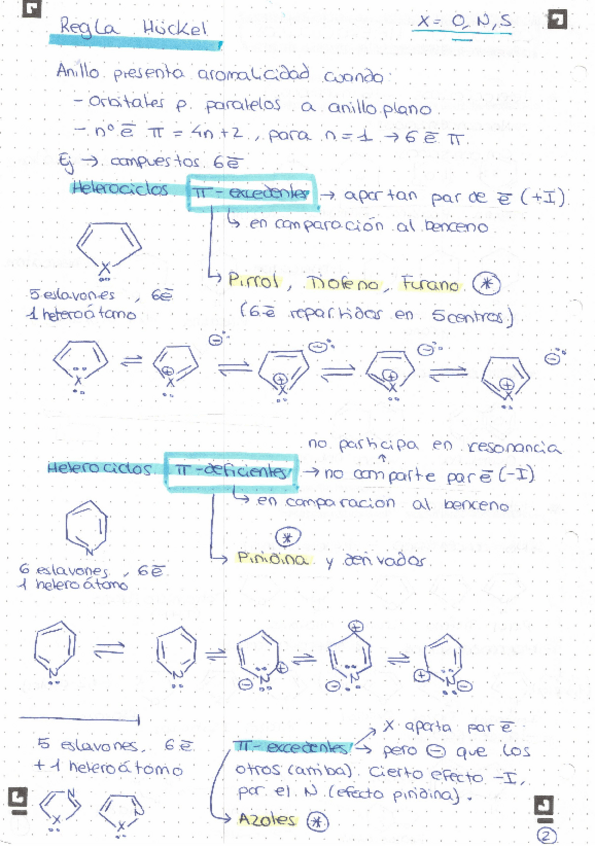 Regla Hückel
X = O, N, S.
Anillo presenta aromaticidad cuando:
- Orbitales p. paralelos a anillo plano
- nº ē π = 4n+2, para n=1 → 6 ē π.
Ej → compuestos 6ē
Heterociclos π-excedentes → aportan par de ē (+I).
↳ en comparación al benceno
X
↳ Pirrol, Tiofeno, Furano *
5 eslavones, 6ē
1 heteroátomo
(6ē repartidos en 5 centros)
X ⇌ X ⊕ ⊖ ⇌ X ⊕ ⊖ ⇌ X ⊕ ⊖ ⇌ X ⊕ ⊖
no participa en resonancia
Heterociclos π-deficientes → no comparte par ē (-I)
↳ en comparacion al benceno
N
*
↳ Piridina y derivados.
6 eslavones, 6ē
1 heteroátomo
N ⇌ N ⇌ N ⊕ ⊖ ⇌ N ⊕ ⊖ ⇌ N ⊕ ⊖
X aporta par ē
5 eslavones, 6ē
+ 1 heteroátomo
π-excedentes → pero ⊖ que los
otros (arriba). Cierto efecto -I,
por el N (efecto piridina).
N X N X
Azoles *
2